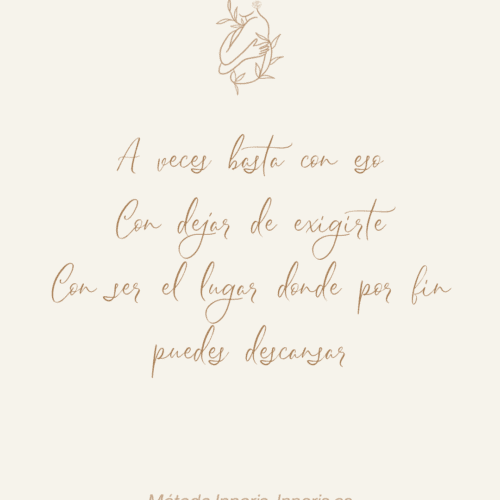 A veces basta con eso
Con dejar de exigirte
Con ser el lugar donde por fin
puedes descansar